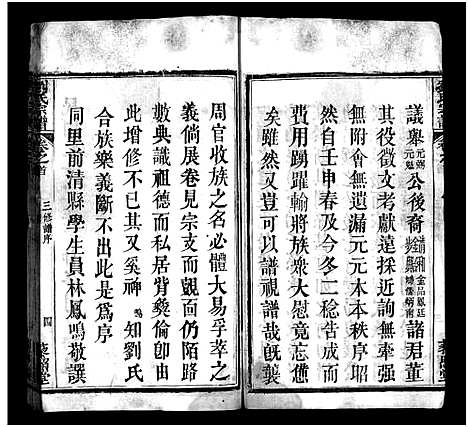 議舉元弼元魁公後裔諸君董
其役徵文考獻遠採近詢無濫
無附會無遺漏元元本本秩序昭
然自壬申春及今冬二稔告成而
費用踴躍輸將族眾大慰竟志僊
矣雖然又豈可以譜視譜哉襲
周官收族之名必體大易孚萃之
義倘展卷見宗支而覿面仍陌路
數典識祖德而私居背彝倫卽由
此增修不已其又奚裨鳴知劉氏
合族樂義斷不出此是爲序
同里前清縣學生員林鳳鳴敬譔
劉氏宗譜
卷之首
三修譜序
四
藜照堂